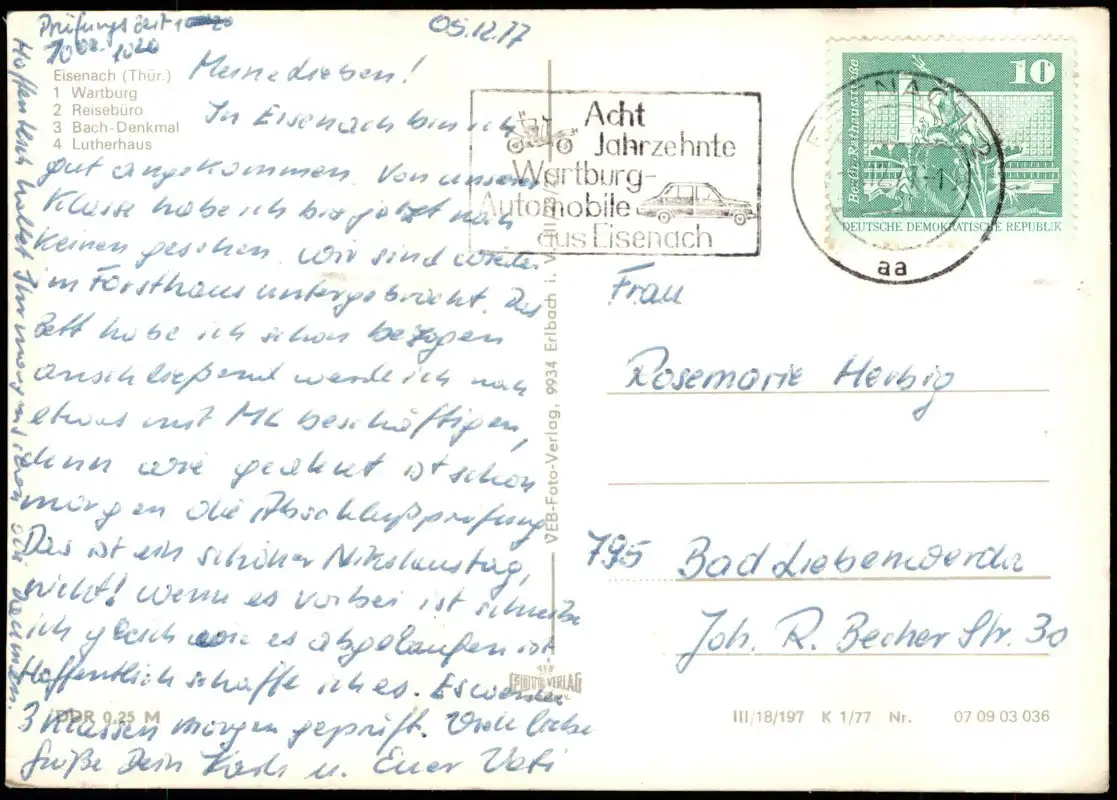 Prüfungszeit
10 00 - 10 20
05.12.77
Eisenach (Thür.)
1 Wartburg
2 Reisebüro
3 Bach-Denkmal
4 Lutherhaus
Meine Lieben!
In Eisenach bin ich
gut angekommen. Von unserer
Klasse habe ich bis jetzt noch
keinen gesehen. Wir sind wieder
im Forsthaus untergebracht. Das
Bett habe ich schon bezogen
anschließend werde ich noch
etwas mit ML beschäftigen,
denn wie geahnt ist schon
morgen die Abschlußprüfung
Das ist ein schöner Nikolaustag,
nicht! Wenn es vorbei ist schreibe
ich gleich wie es abgelaufen ist.
Hoffentlich schaffe ich es. Es werden
3 Klassen morgen geprüft. Viele liebe
Grüße Dein Karli u. Euer Vati
Hoffentlich haltet Ihr morgen schon die Daumen.
DDR 0,25 M
VEB-Foto-Verlag, 9934 Erlbach i. V.
FOTO VERLAG
Acht
Jahrzehnte
Wartburg-
Automobile
aus Eisenach
EISENACH
aa
10
Berlin-Rathausstraße
DEUTSCHE DEMOKRATISCHE REPUBLIK
Frau
Rosemarie Herbig
795 Bad Liebenwerda
Joh. R. Becher Str. 30
III/18/197 K 1/77 Nr. 07 09 03 036